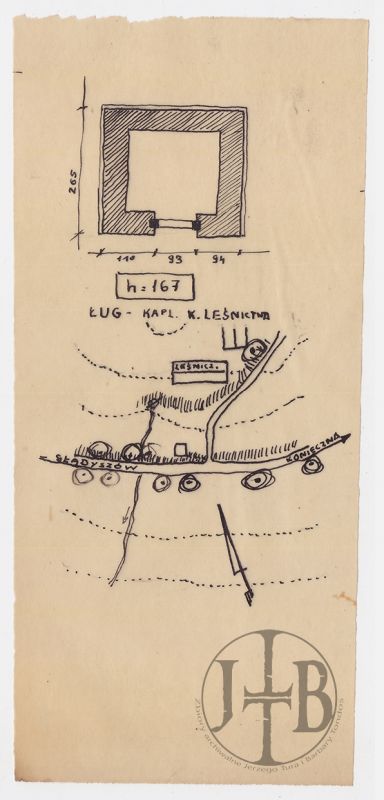 265
110 93 94
h=167
ŁUG - KAPL. K. LEŚNICTWA
LEŚNICZ.
GŁADYSZÓW
KONIECZNA
JTTB
Zbiory archiwalne Jerzego Tura i Barbary Tondos